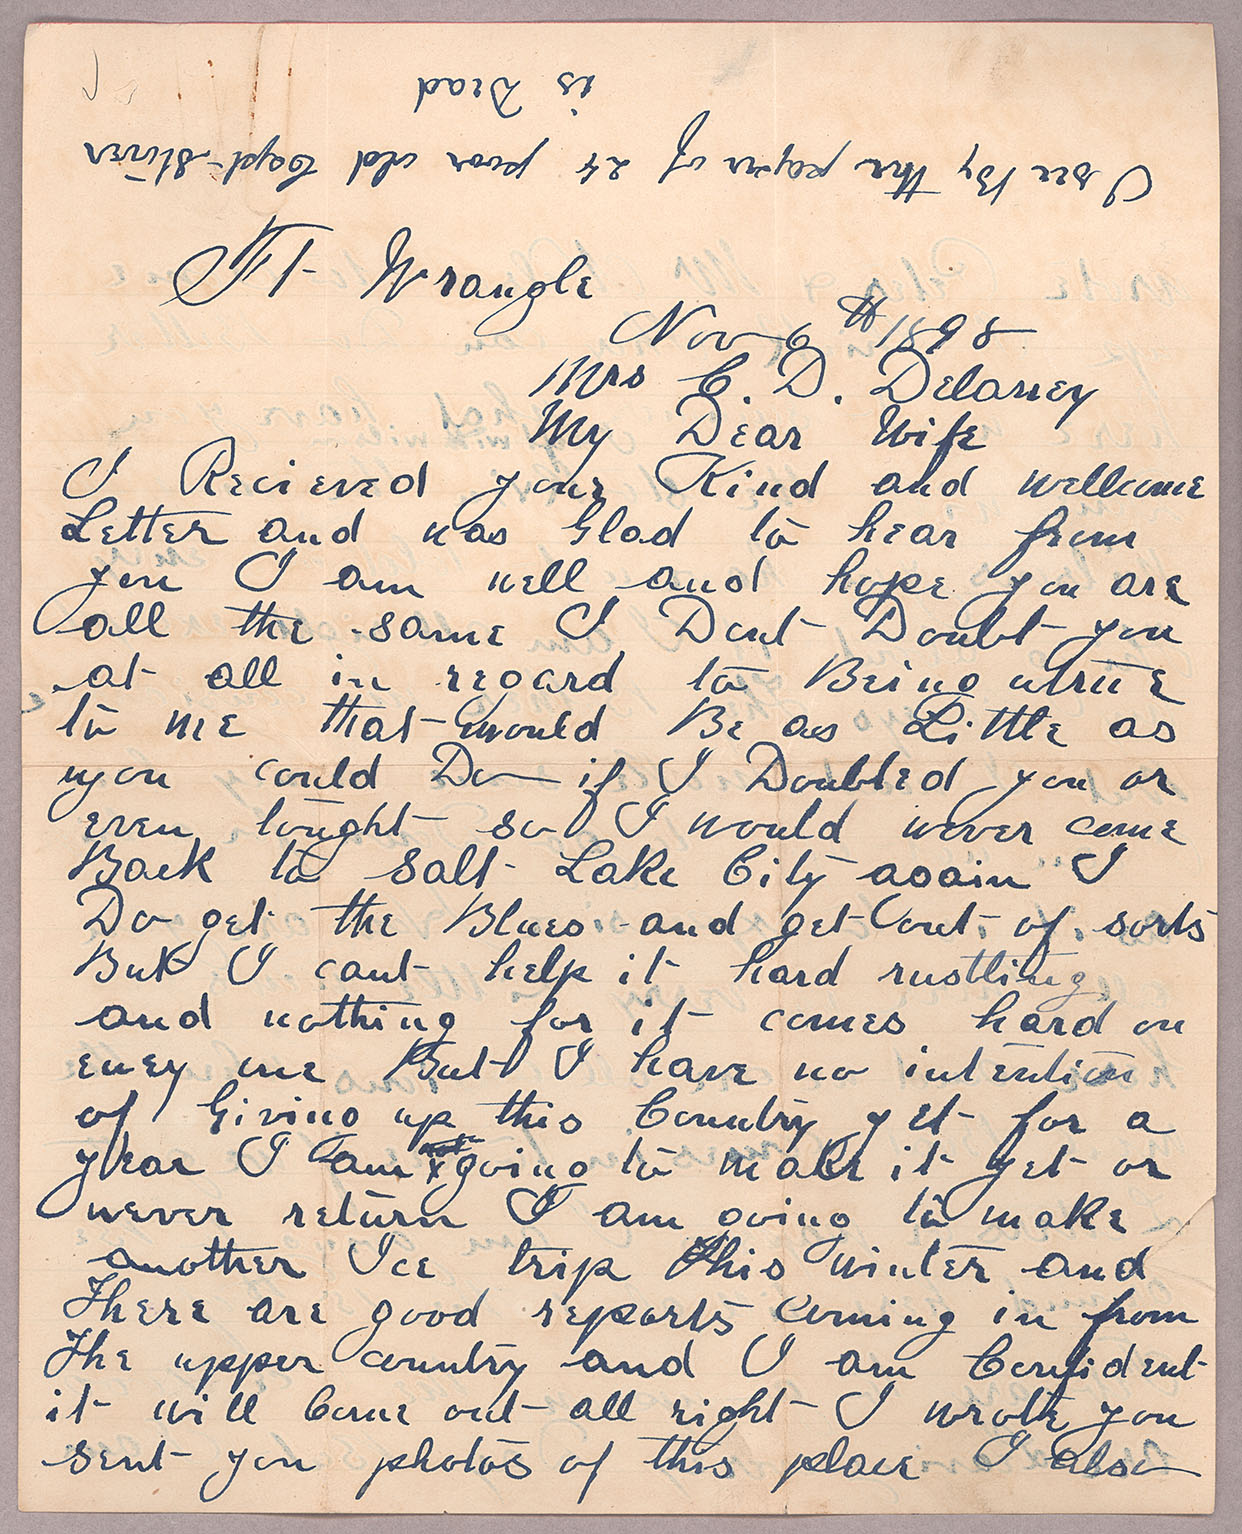 I see By the paper of 24 poor old Capt Stiver
is Dead
Ft Wrangle
Nov 9th 1898
Mrs C. D. Delaney
My Dear Wife
I Recieved your Kind and wellcome
Letter and was Glad to hear from
you I am well and hope you are
all the same I Dont Doubt you
at all in regard to Being untrue
to me that would Be as Little as
you could Do if I Doubted you or
even tought so I would never come
Back to Salt Lake City again I
Do get the Blues and get out of sorts
But I cant help it hard rustling
and nothing for it comes hard on
evey one But I have no intention
of Giving up this Country yet for a
year I am going to make it yet or
never return I am going to make
another Ice trip this winter and
There are good reports Coming in from
The upper country and I am Confident
it will Come out all right I wrote you
sent you photos of this place I also